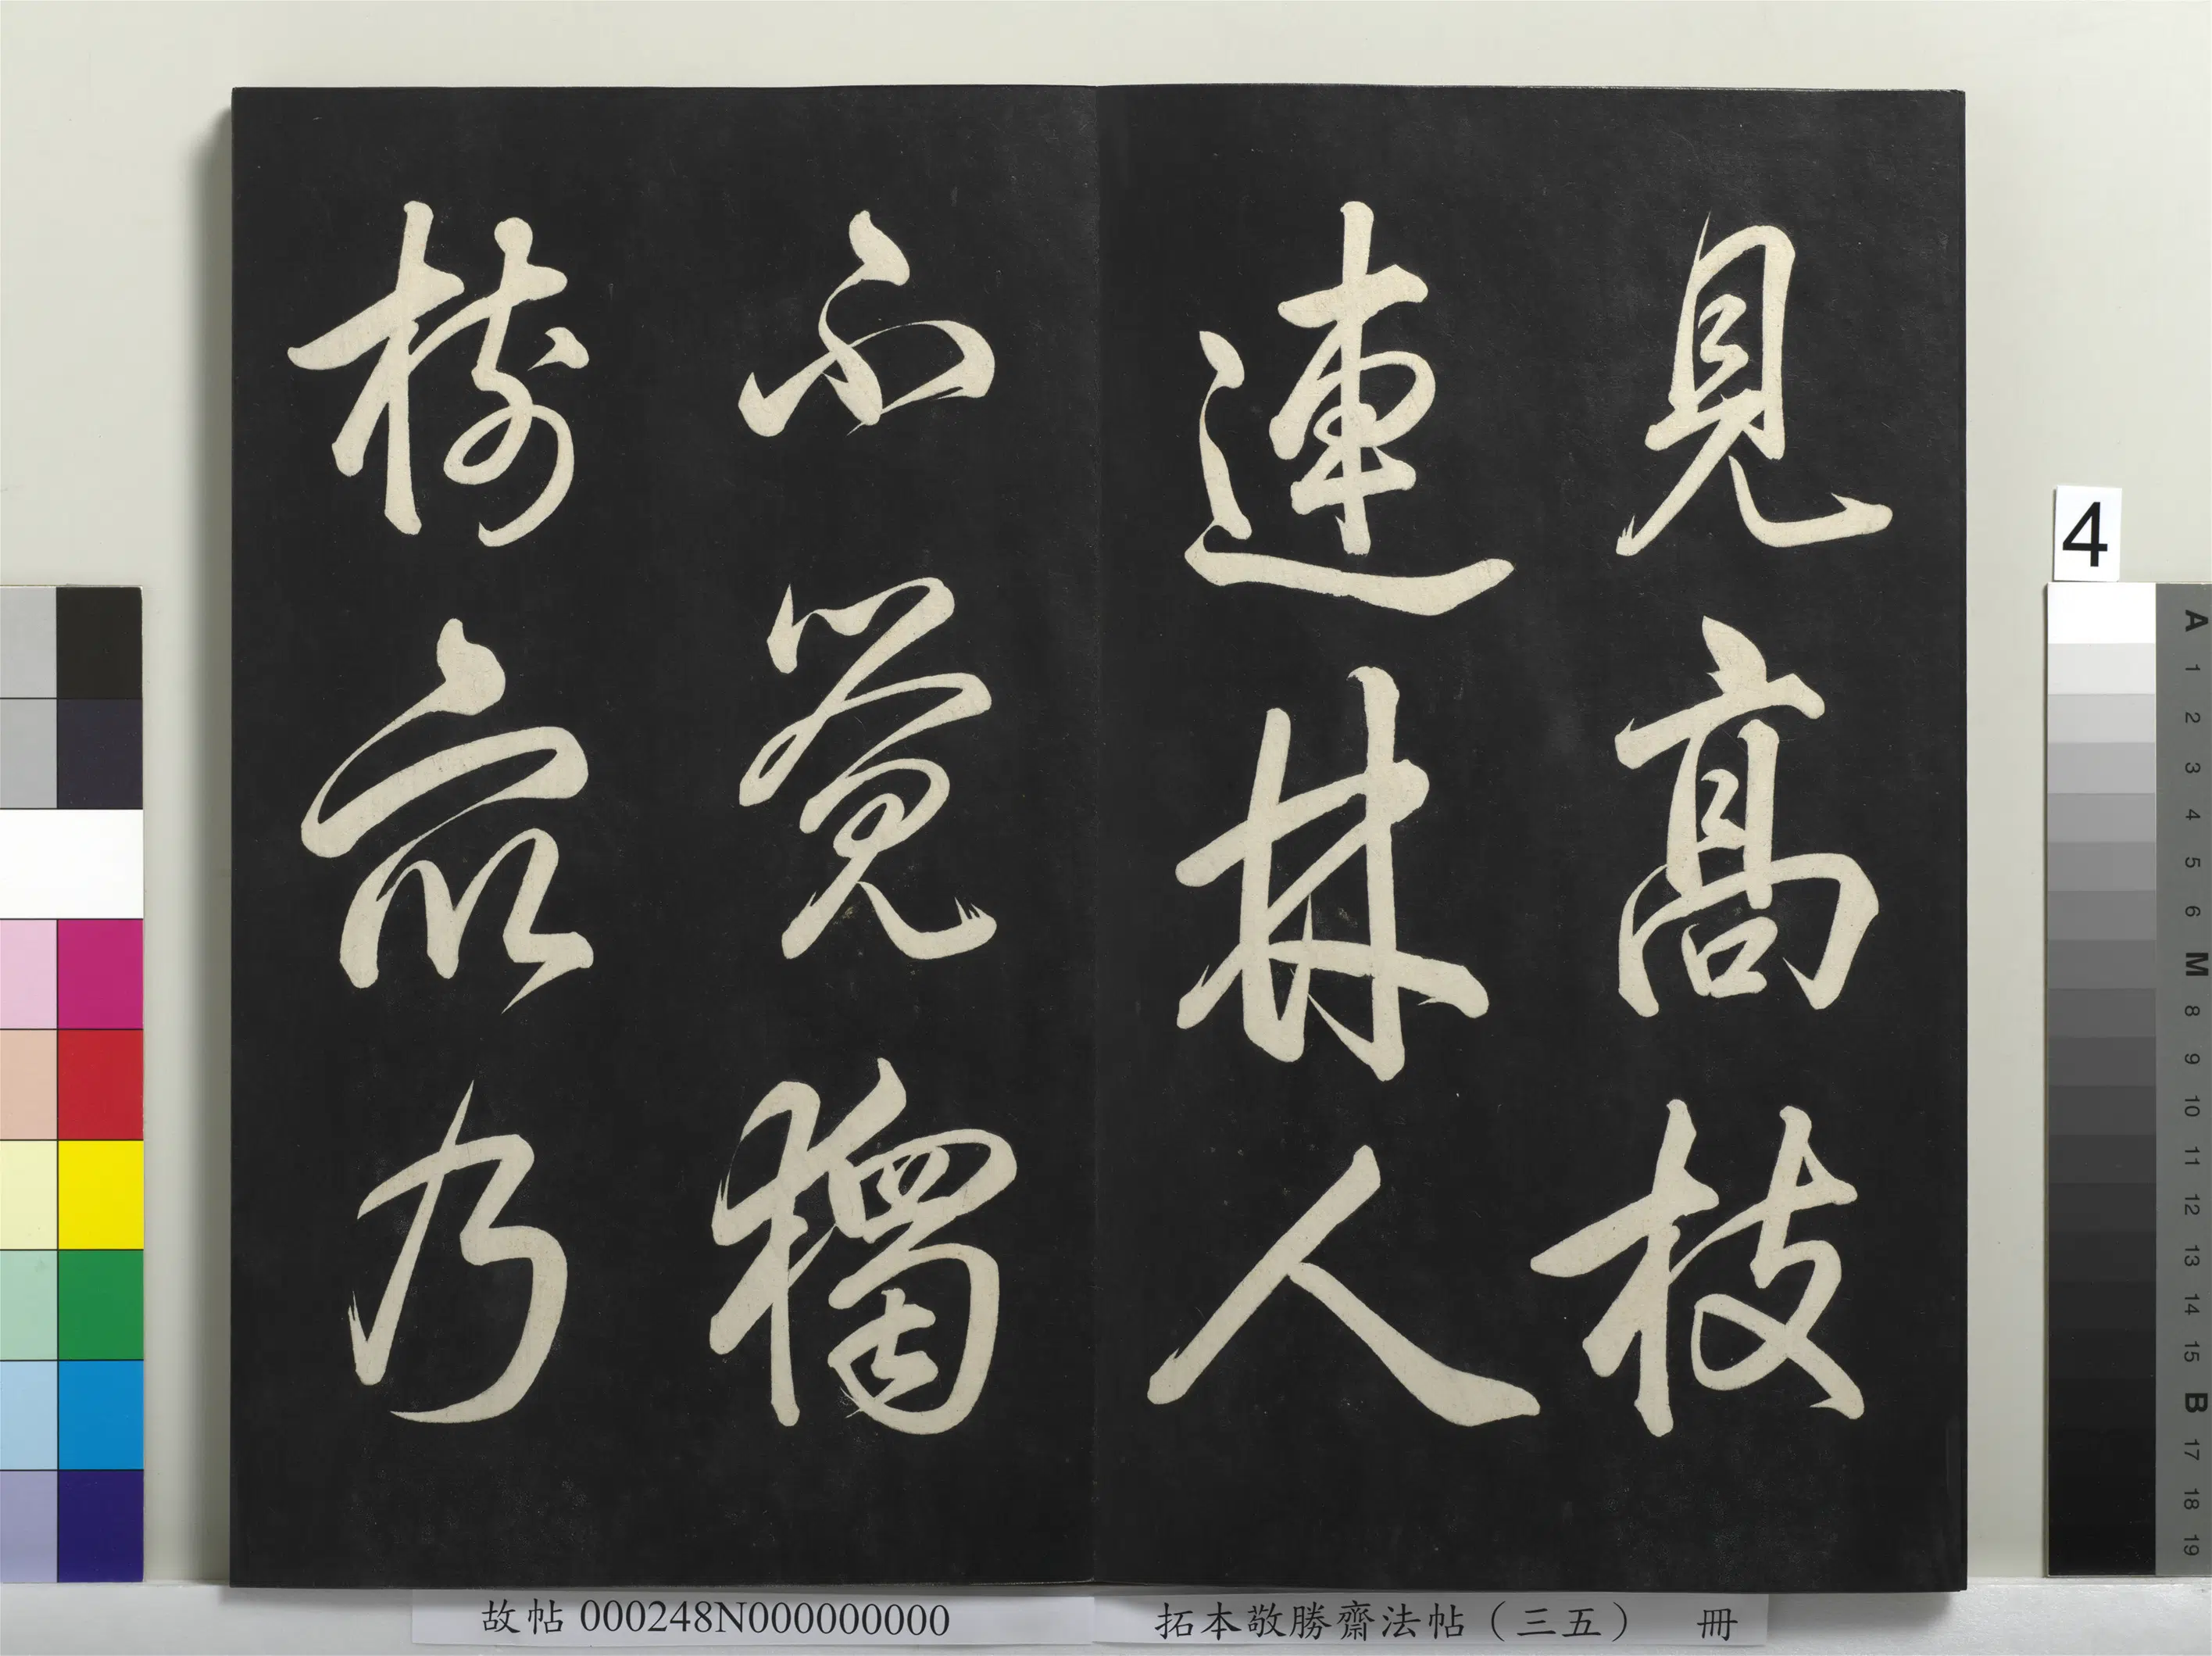 見高枝
連林人
不覺獨
樹衆乃
故帖 000248N000000000
拓本敬勝齋法帖（三五） 冊
4
A
1
2
3
4
5
6
M
8
9
10
11
12
13
14
15
B
17
18
19